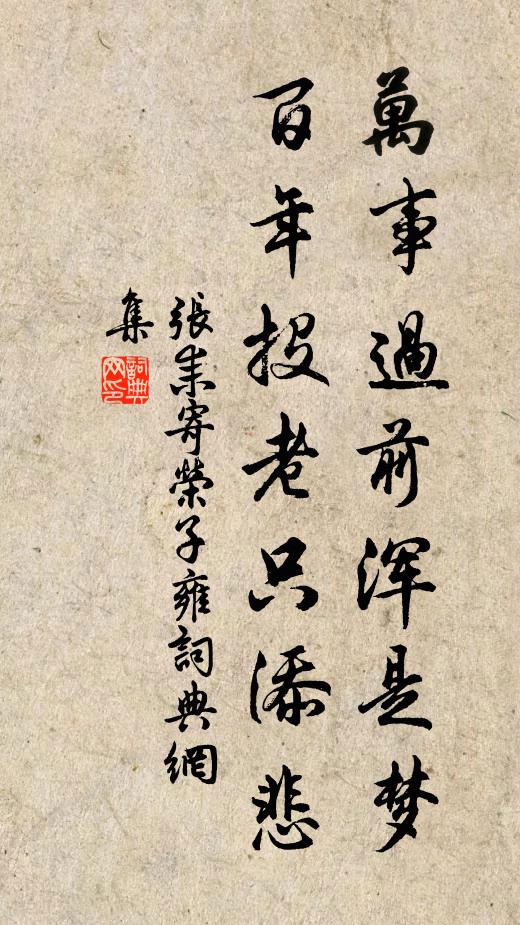 萬事過前浑是梦
百年投老只添悲
張耒寄榮子雍詞典網
集
詞典
网印